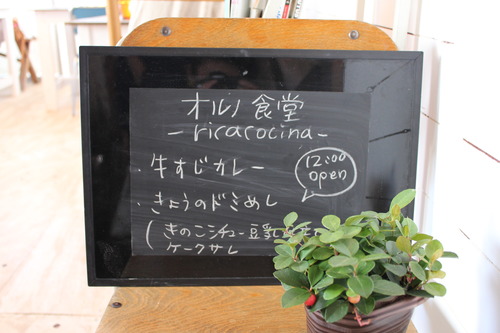 オルノ食堂
-ricacocina-
・牛すじカレー
12:00
open
・きょうのドミめし
(きのこシチュー豆乳
ケークサレ